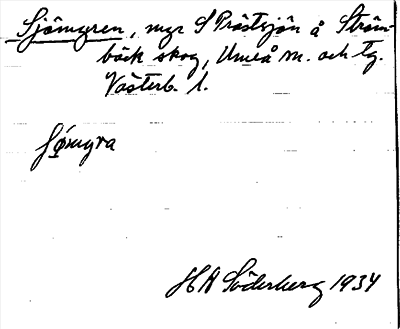 Sjömyren, myr S Prästsjön å Ström-
bäck skog, Umeå sn. och tg.
Västerb. l.
HA Söderberg 1934